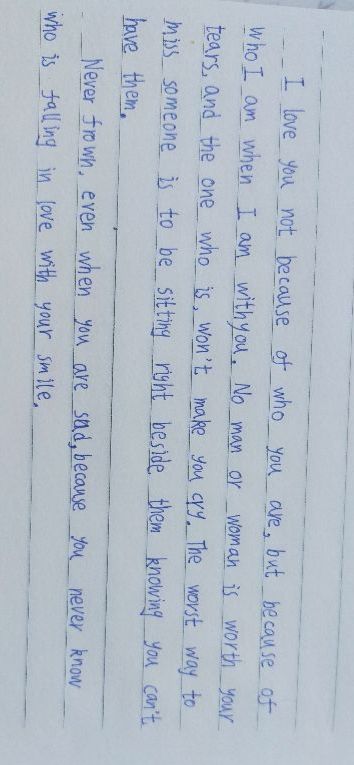 I love you not because of who you are, but because of
who I am when I am with you. No man or woman is worth your
tears, and the one who is, won't make you cry. The worst way to
miss someone is to be sitting right beside them knowing you can't
have them.
Never frown, even when you are sad, because you never know
who is falling in love with your smile.